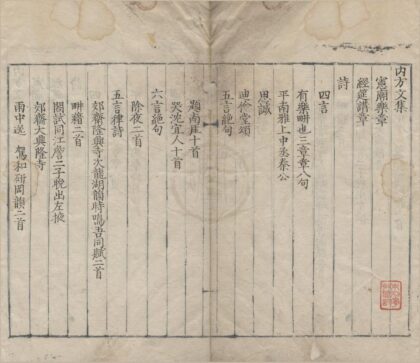 内方文集
憲廟樂章
經筵講章
詩
四言
有樂畊也三章章八句
平南雅上中丞秦公
思誠
迪倫堂頌
五言絕句
題南庄十首
哭沈宜人十首
六言絕句
除夜二首
五言律詩
郊齋隆興寺次龍湖韻時鳴吾同賦二首
畊籍二首
閣試同江詹二子晚出左掖
郊齋大興隆寺
雨中送　駕和研岡韻二首